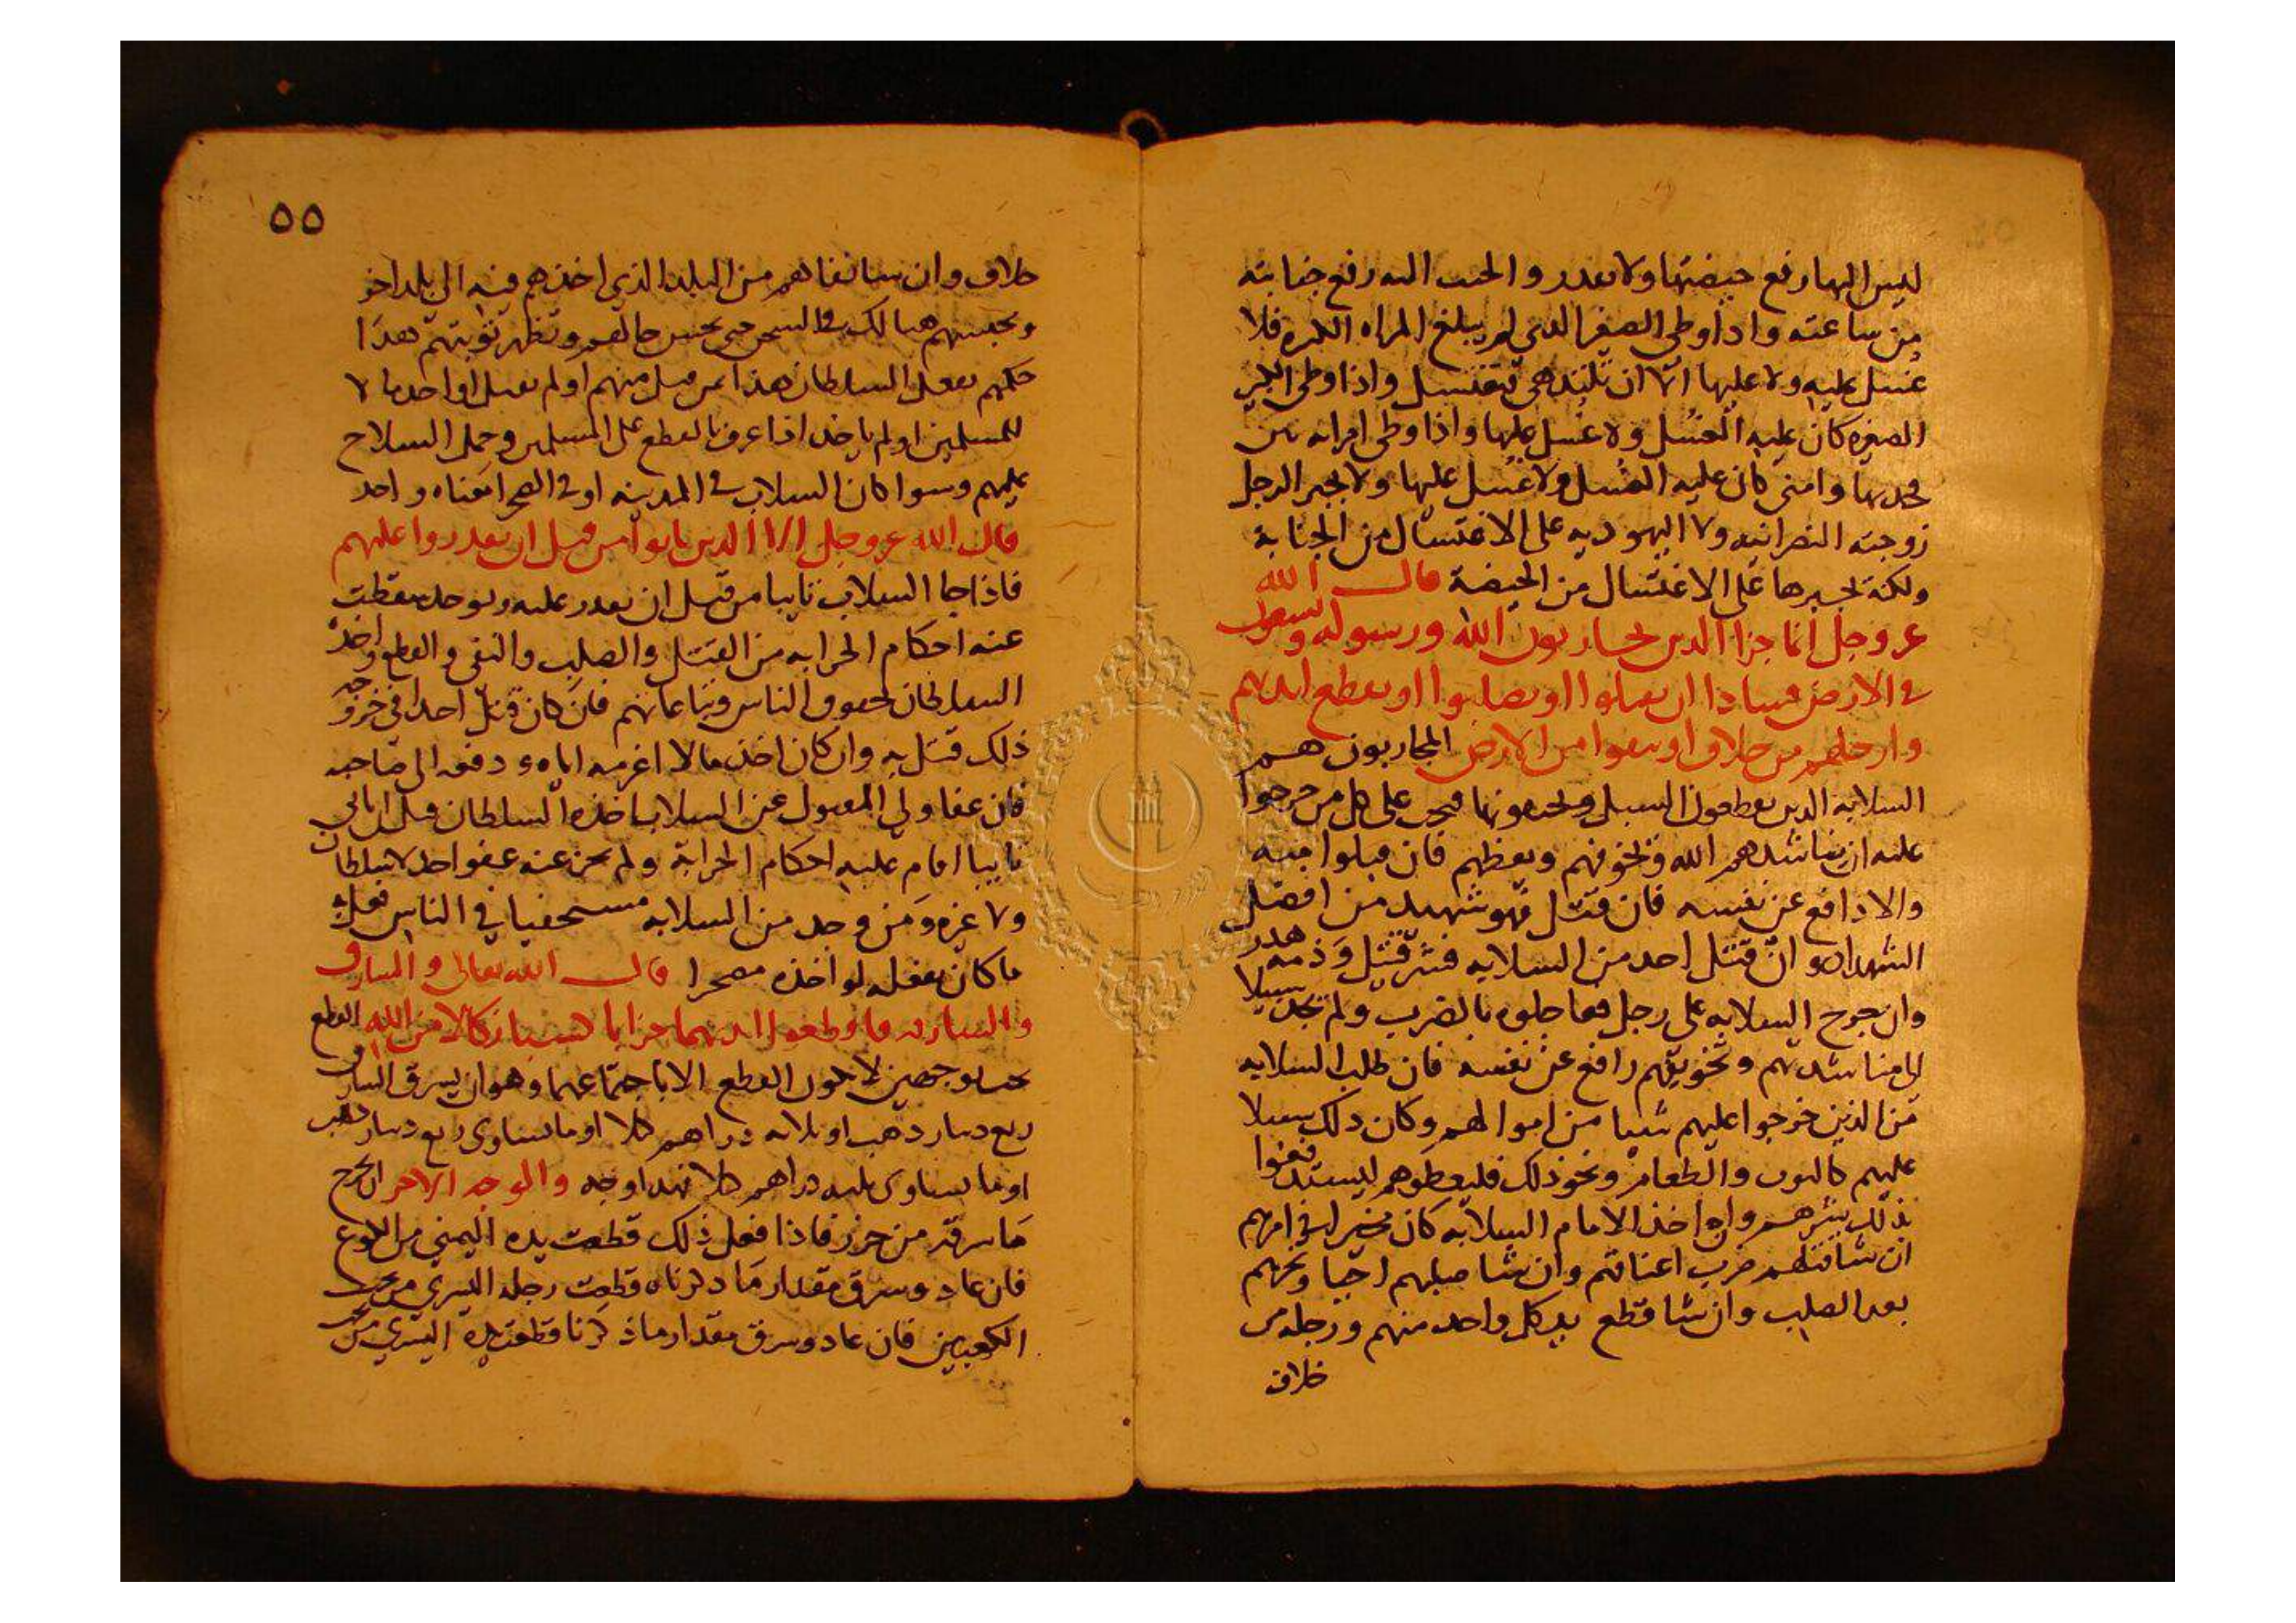 ليس اليها رفع حيضتها ولا تقدر والجنب اليه رفع جنابته
من ساعته واذا وطي الصغير الذي لم يبلغ المراه الكبيره فلا
غسل عليه ولا عليها الا ان تلتذ هي فتغتسل واذا وطي الكبير
الصغيره كان عليه الغسل ولا غسل عليها واذا وطي امراته بين
فخديها وامنى كان عليه الغسل ولا غسل عليها ولا يجبر الرجل
زوجته النصرانيه ولا اليهوديه على الاغتسال من الجنابة
ولكنه يجبرها على الاغتسال من الحيضة قال الله
عز وجل انما جزا الذين يحاربون الله ورسوله ويسعون
في الارض فسادا ان يقتلوا او يصلبوا او تقطع ايديهم
وارجلهم من خلاف او ينفوا من الارض المحاربون هم
السلابه الذين يقطعون السبيل ويخيفونها فيجب على كل من خرجوا
عليه ان يناشدهم الله ويخوفهم ويعظهم فان قبلوا منه
والا دافع عن نفسه فان قتل فهو شهيد من افضل
الشهدا وان قتل احد من السلابه فشر قتيل ودمه هدر
وان خرج السلابه على رجل فعاجلوه بالضرب ولم يجد سبيلا
الى مناشدتهم وتخويفهم دافع عن نفسه فان طلب السلابه
من الذين خرجوا عليهم شيا من اموالهم وكان ذلك يسيرا
عليهم كالثوب والطعام ونحو ذلك فليعطوهم ليستدفعوا
بذلك شرهم وان اخذ الامام السلابه كان مخيرا في امرهم
ان شا قتلهم ضرب اعناقهم وان شا صلبهم احيا ونحرهم
بعد الصلب وان شا قطع يد كل واحد منهم ورجله من
خلاف
٥٥
خلاف وان شا نفاهم من البلد الذي اخذهم فيه الى بلد اخر
وحبسهم هنالك في السجن حتى يحسن حالهم وتظهر توبتهم هذا
حكمهم يفعل السلطان هذا بمن قتل منهم او لم يقتل او اخذ مالا
للمسلمين او لم ياخذ اذا عرف بالقطع على المسلمين وحمل السلاح
عليهم وسوا كان السلاب في المدينه او في الصحرا معناه واحد
قال الله عز وجل الا الذين تابوا من قبل ان تقدروا عليهم
فاذا جا السلاب تايبا من قبل ان يقدر عليه ويوخذ سقطت
عنه احكام الحرابه من القتل والصلب والنفي والقطع واخذه
السلطان بحقوق الناس وتباعاتهم فان كان قتل احدا في خروجه
ذلك قتل به وان كان اخذ مالا اغرمه اياه ودفعه الى صاحبه
فان عفا ولي المقتول عن السلاب اخذه السلطان قبل ان ياتي
تايبا اقام عليه احكام الحرابة ولم يجز عنه عفو احد لا سلطان
ولا غيره ومن وجد من السلابه مستخفيا في الناس فعل به
ما كان يفعله لو اخذه مصحرا قال الله تعالى والسارق
والسارقه فاقطعوا ايديهما جزا بما كسبا نكالا من الله القطع
يجب بوجهين لا يكون القطع الا باجتماعهما وهو ان يسرق السارق
ربع دينار ذهب او ثلاثه دراهم كيلا او ما يساوي ربع دينار ذهب
او ما يساوي ثلثه دراهم كيلا فهذا وجه والوجه الاخر ان يخرج
ما سرقه من حرز فاذا فعل ذلك قطعت يده اليمني من الكوع
فان عاد وسرق مقدار ما ذكرناه قطعت رجله اليسري من تحت
الكعبين فان عاد وسرق مقدار ما ذكرنا قطعت يده اليسري من